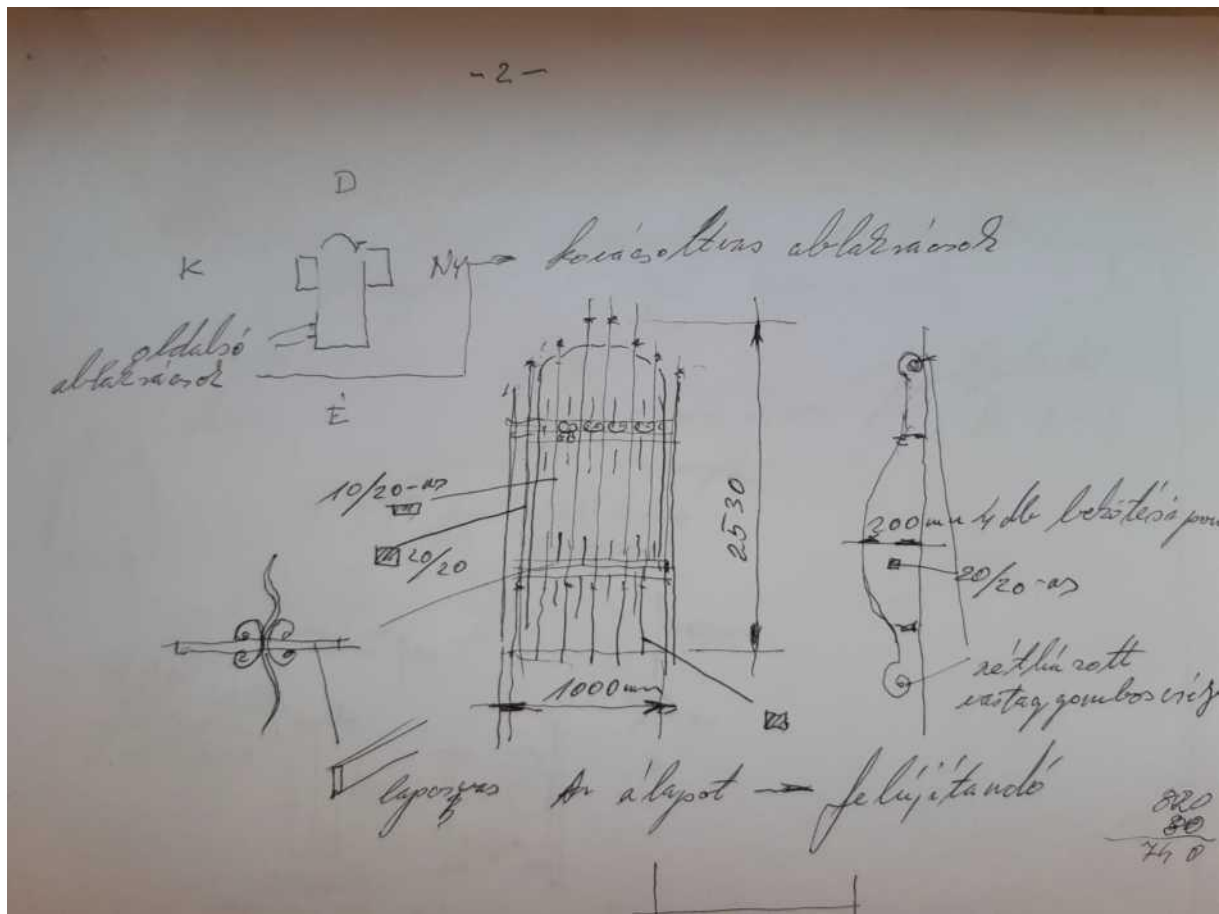 - 2 -
D
K
Ny
kovácsoltvas ablakrácsok
oldalsó
ablakrácsok
É
10/20-as
20/20
2530
200mm 4 db bekötési pon
20/20-as
1000mm
széthúzott
vastag, gombos
laposvas
állapot → felújítandó
820
80
740